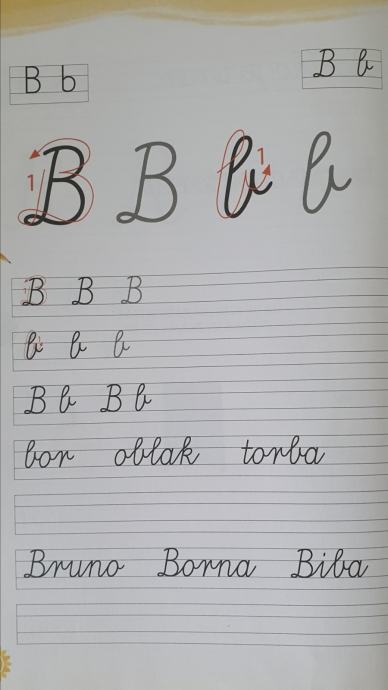 B b
B b
1 B B 1 b b
B B B
b b b
B b B b
bor oblak torba
Bruno Borna Biba